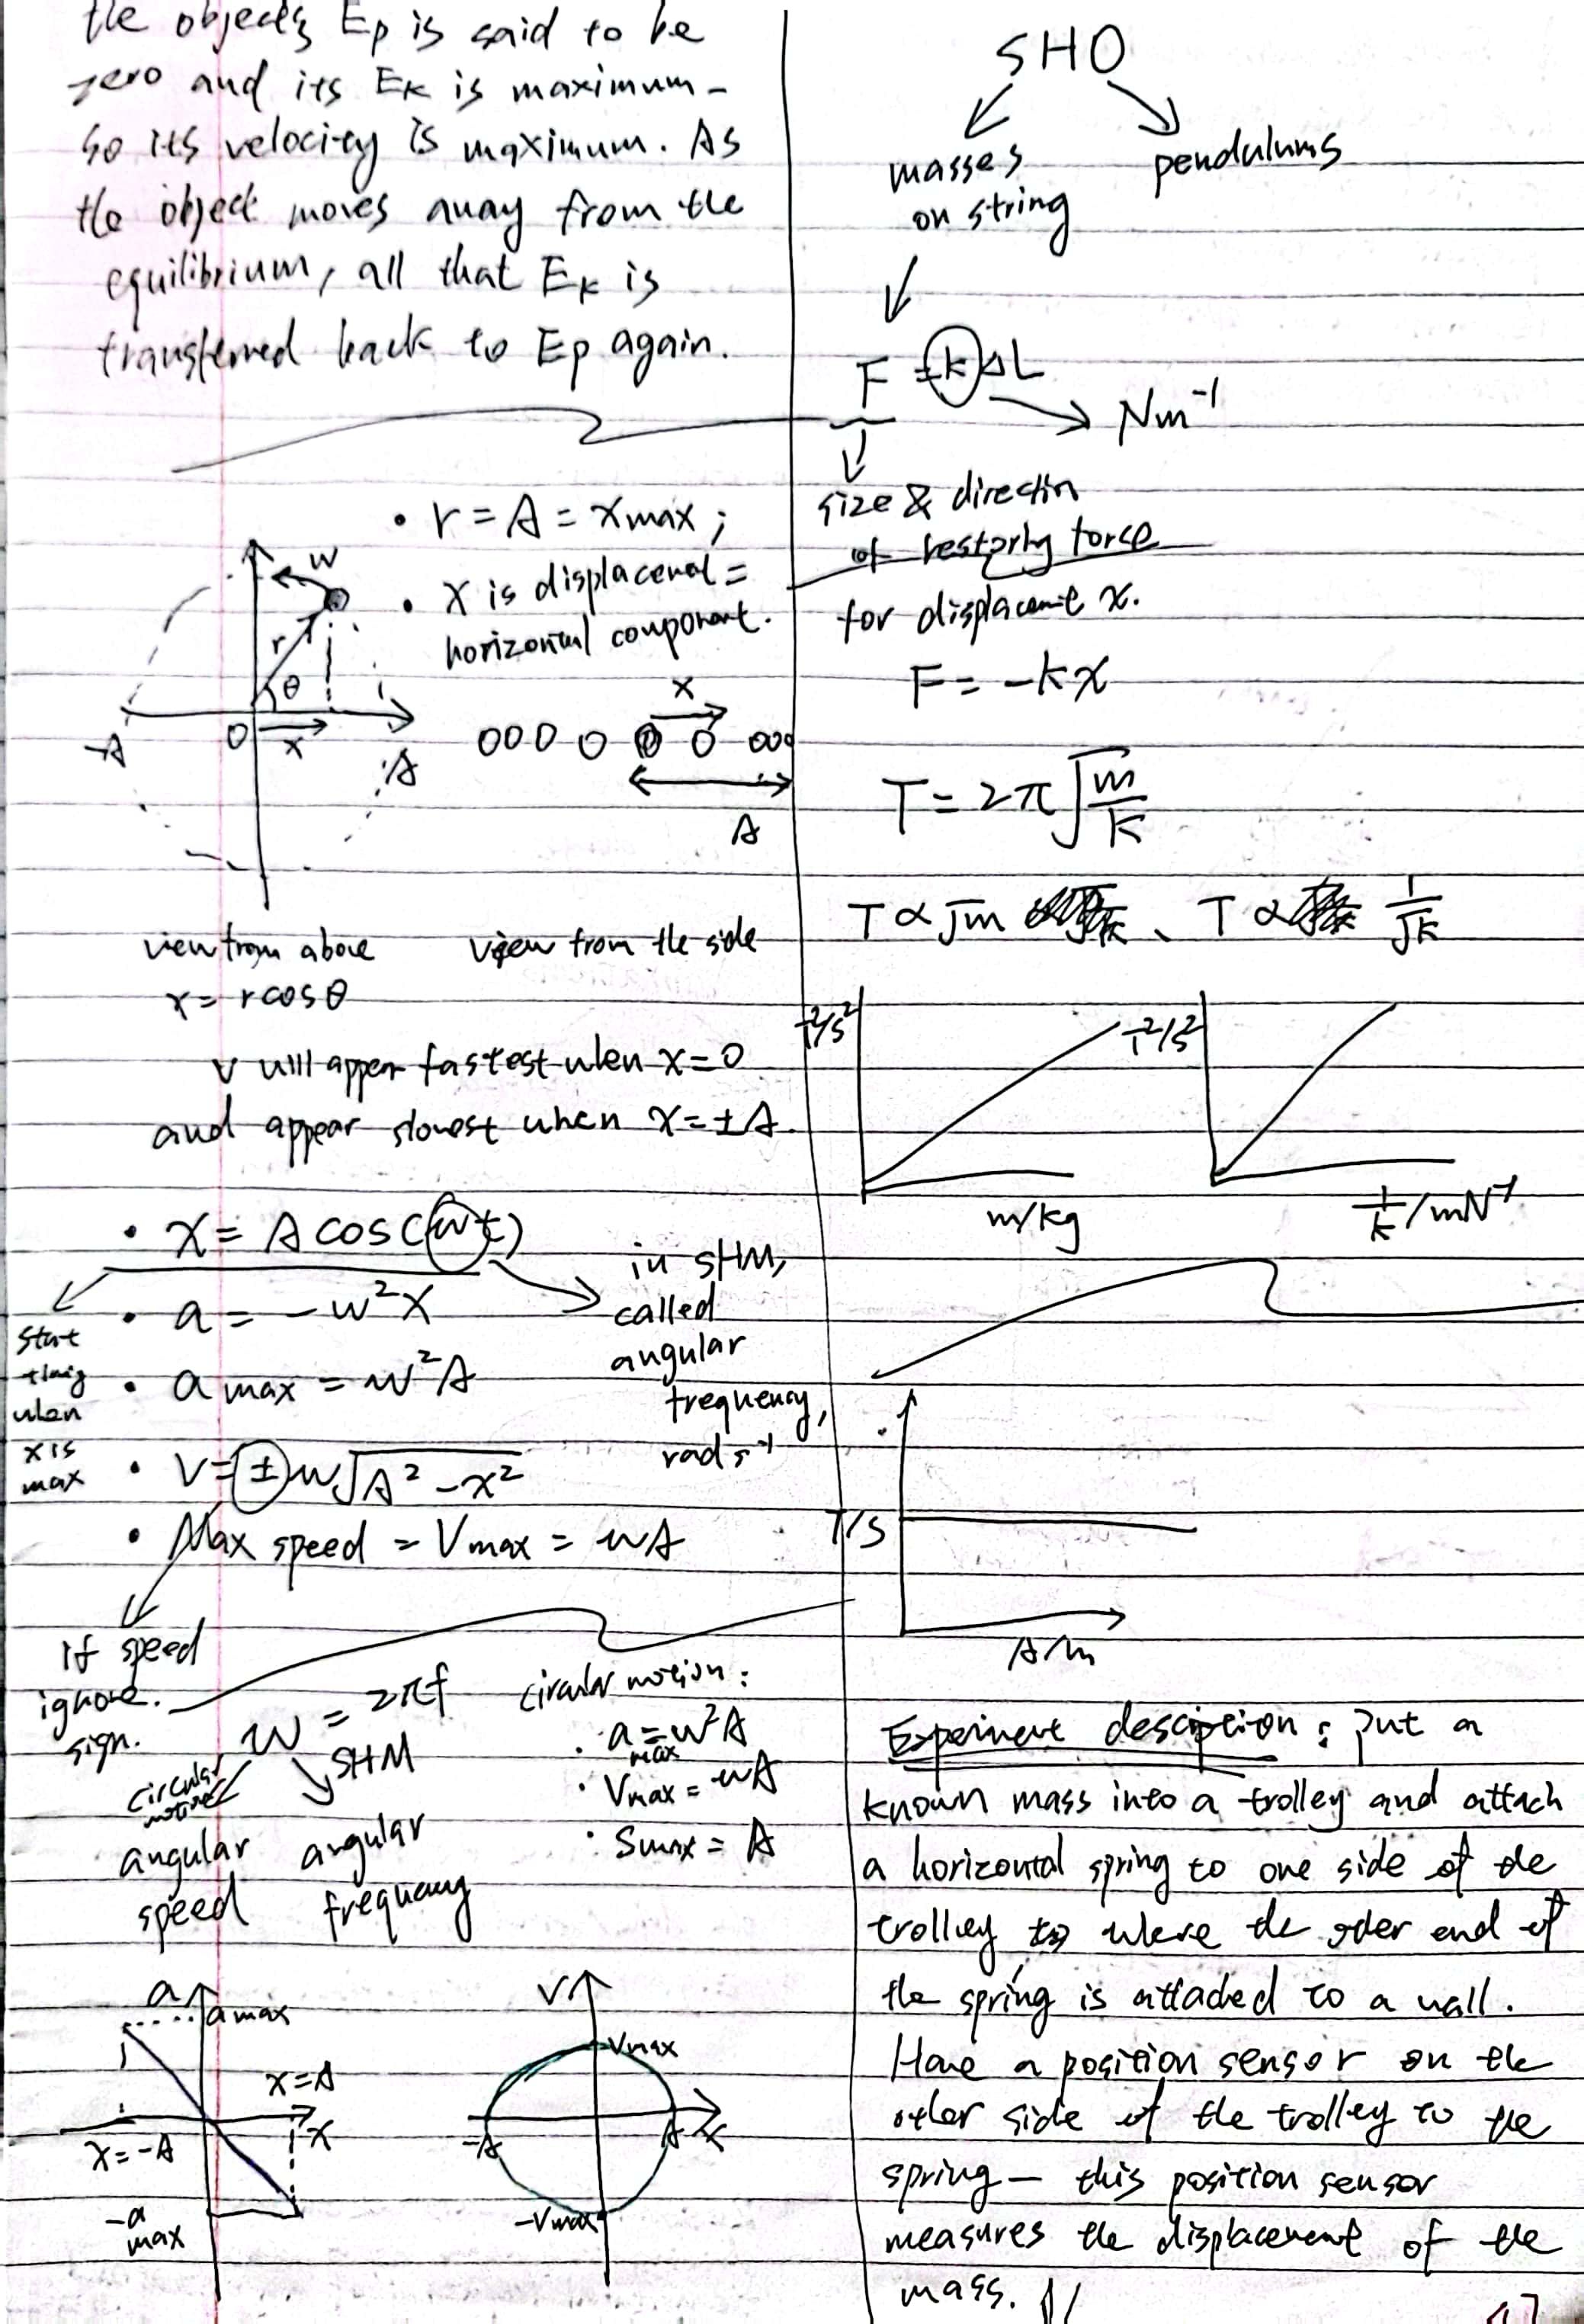 the objects Ep is said to be
zero and its EK is maximum -
so its velocity is maximum. As
the object moves away from the
equilibrium, all that EK is
transferred back to Ep again.
• r = A = xmax ;
• x is displacement =
horizontal component.
w
r
θ
-A
O
x
A
x
A
view from above
view from the side
x = rcosθ
v will appear fastest when x=0
and appear slowest when x=±A.
• x = A cos(wt)
in SHM,
called
angular
frequency,
rad s⁻¹
start
timing
when
x is
max
• a = -w²x
• a max = w²A
• V = ±w√A² - x²
• Max speed = Vmax = wA
If speed
ignore
sign.
w = 2πf
circular
motion
SHM
angular
speed
angular
frequency
circular motion :
• a max = w²A
• Vmax = wA
• Smax = A
a
amax
x=A
x
x=-A
-a
max
V
Vmax
-A
A
x
-Vmax
SHO
masses
on string
pendulums
F = k ΔL
Nm⁻¹
size & directin
of restoring force
for displacement x.
F = -kx
T = 2π√m/k
T ∝ √m 、 T ∝ 1/√k
T²/s²
m/kg
T²/s²
1/k /mN⁻¹
T/S
A/m
Experiment description : put a
known mass into a trolley and attach
a horizontal spring to one side of the
trolley where the other end of
the spring is attached to a wall.
Have a position sensor on the
other side of the trolley to the
spring - this position sensor
measures the displacement of the
mass.